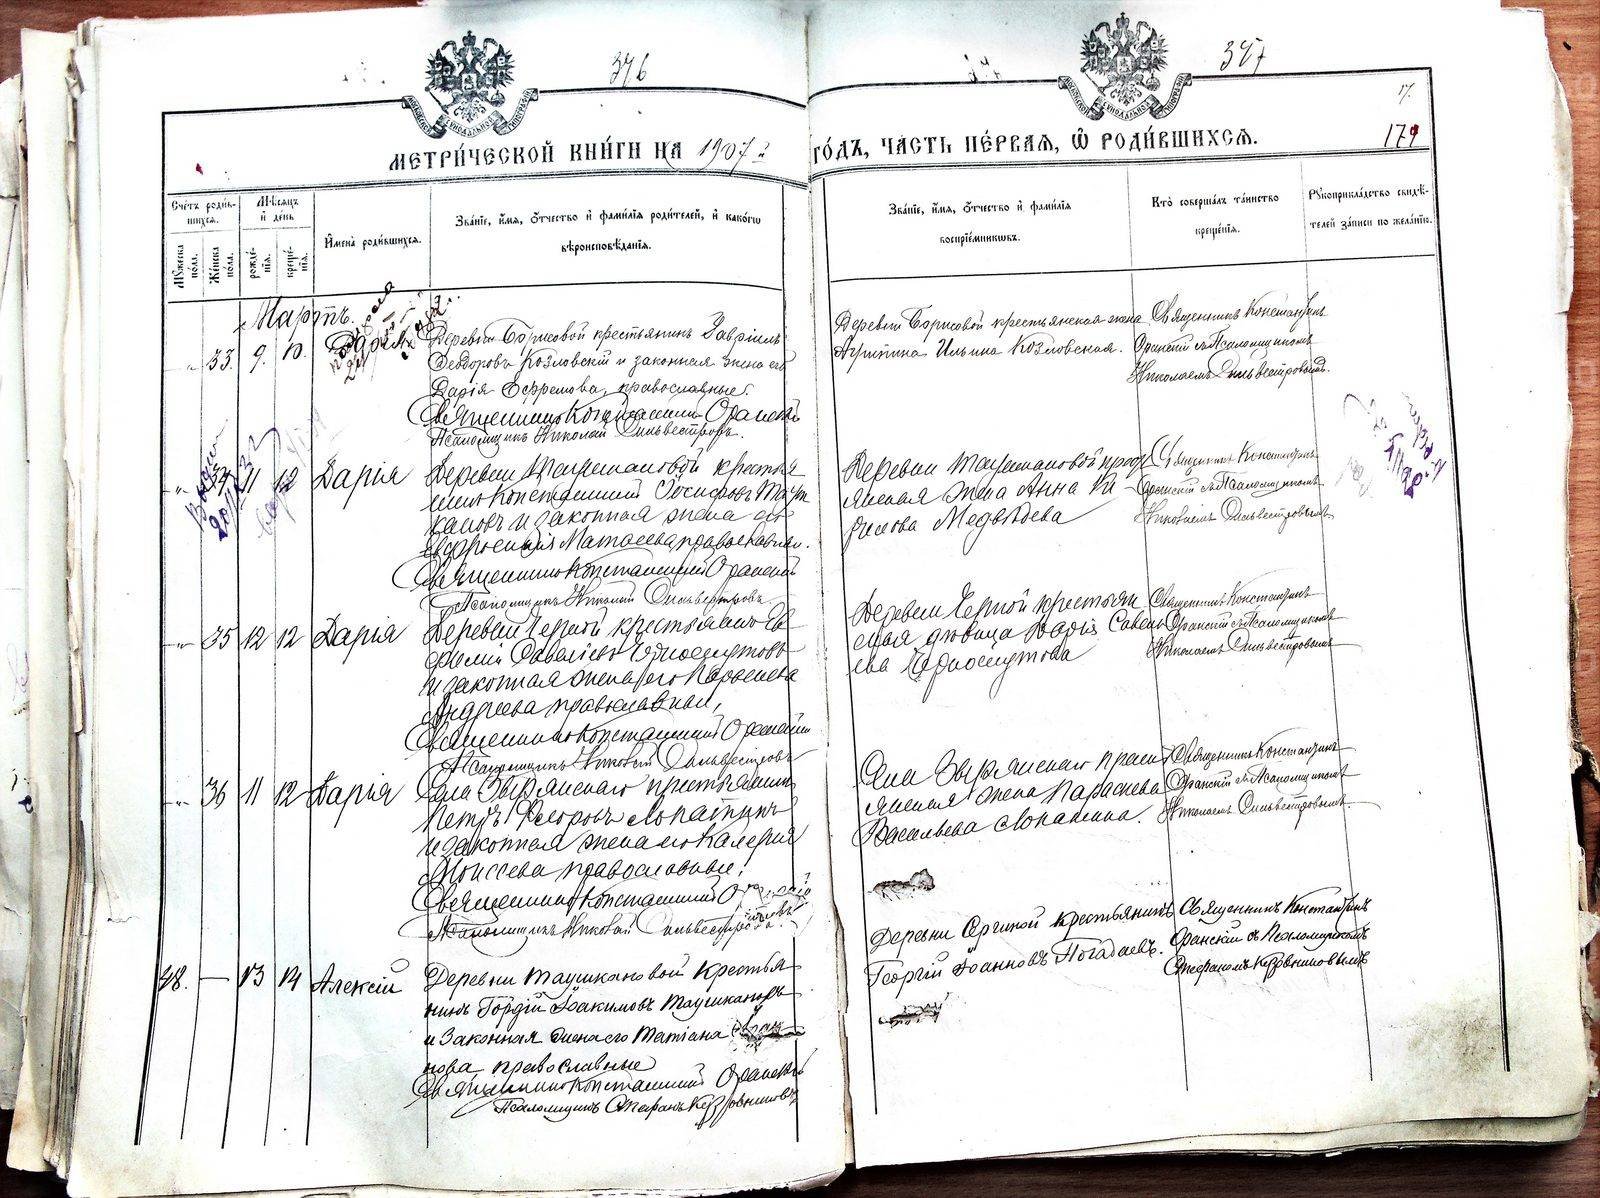 376
347
17.
179
МОСКОВСКОЙ СУНОДАЛЬНОЙ ТИПОГРАФІИ
МОСКОВСКОЙ СУНОДАЛЬНОЙ ТИПОГРАФІИ
МЕТРИ́ЧЕСКОЙ КНИ́ГИ НА 1907й ГО́ДЪ, ЧА́СТЬ ПЕ́РВАЯ, Ѡ҆ РОДИ́ВШИХСЯ.
Сче́тъ роди́в-
шихся.
Мꙋ́жеска по́ла.
Же́нска по́ла.
Мѣ́сяцъ и҆ де́нь
рожде́-
нїя.
креще́-
нїя.
И҆мена̀ роди́вшихся.
Зва́нїе, и҆́мя, ѻ҆́тчество и҆ фами́лїя роди́телей, и҆ како́гѡ
вѣроисповѣ́данїя.
Зва́нїе, и҆́мя, ѻ҆́тчество и҆ фами́лїя
воспрїе́мникѡвъ.
Кто̀ соверша́лъ та́инство
креще́нїя.
Рꙋкоприкла́дство свидѣ́-
телей за́писи по жела́нїю.
Мартъ.
„ 33. 9. 10.
Деревни Борисовой крестьянинъ Гавріилъ
Феодоровъ Козловскій и законная жена его
Дарія Ефремова, православные.
Священникъ Константинъ Оранскій
Псаломщикъ Николай Сильвестровъ.
Деревни Борисовой крестьянская жена
Агрипина Ильина Козловская.
Священникъ Константинъ
Оранскій съ Псаломщикомъ
Николаемъ Сильвестровымъ.
„ 34 11 12 Дарія
Деревни Таушкановой крестья
нинъ Константинъ Іосифовъ Тауш
кановъ и законная жена его
Евфросинія Матвеева, православные.
Священникъ Константинъ Оранскій
Псаломщикъ Николай Сильвестровъ
Деревни Таушкановой кресть
янская жена Анна Ки
рилова Медвѣдева
Священникъ Константинъ
Оранскій съ Псаломщикомъ
Николаемъ Сильвестровымъ
„ 35 12 12 Дарія
Деревни Черной крестьянинъ Ев
фимій Савельевъ Черноскутовъ
и законная жена его Параскева
Андреева православные,
Священникъ Константинъ Оранскій
Псаломщикъ Николай Сильвестровъ
Деревни Черной крестьян
ская дѣвица Марія Савель
ева Черноскутова
Священникъ Константинъ
Оранскій съ Псаломщикомъ
Николаемъ Сильвестровымъ
„ 36 11 12 Дарія
Села Зырянскаго крестьянинъ
Петръ Феодоровъ Лопатинъ
и законная жена его Валерія
Моисеева православные.
Священникъ Константинъ Оранскій
Псаломщикъ Николай Сильвестровъ.
Села Зырянскаго кресть
янская жена Параскева
Васильева Лопатина.
Священникъ Константинъ
Оранскій съ Псаломщикомъ
Николаемъ Сильвестровымъ.
48. — 13 14 Алексій
Деревни Таушкановой Крестья
нинъ Гордій Іоакимовъ Таушкановъ
и Законная жена его Татіана
нова православные
Священникъ Константинъ Оранскій
Псаломщикъ Стефанъ Коровниковъ
Деревни Сергиной крестьянинъ
Георгій Іоанновъ Погадаевъ.
Священникъ Константинъ
Оранскій съ Псаломщикомъ
Стефаномъ Коровниковымъ